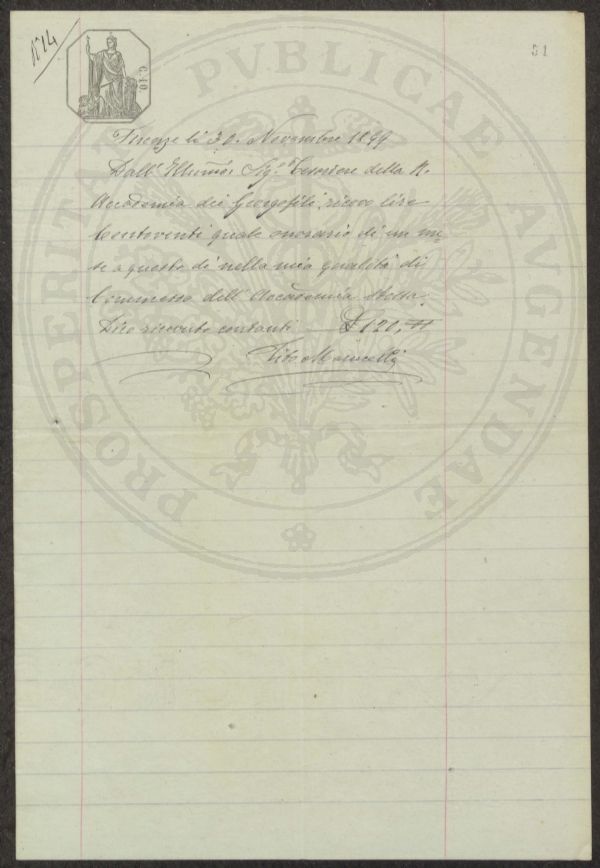 N 14
C. 10
51
PROSPERITATI PVBLICAE AVGENDAE
Firenze li 30. Novembre 1899
Dall' Illmo. Sigr. Cassiere della R.
Accademia dei Georgofili, ricevo lire
Centoventi quale onorario di un me
se a questo dì nella mia qualità di
Commesso dell' Accademia stessa.
Dico ricevute contanti — £ 120, =
Vito